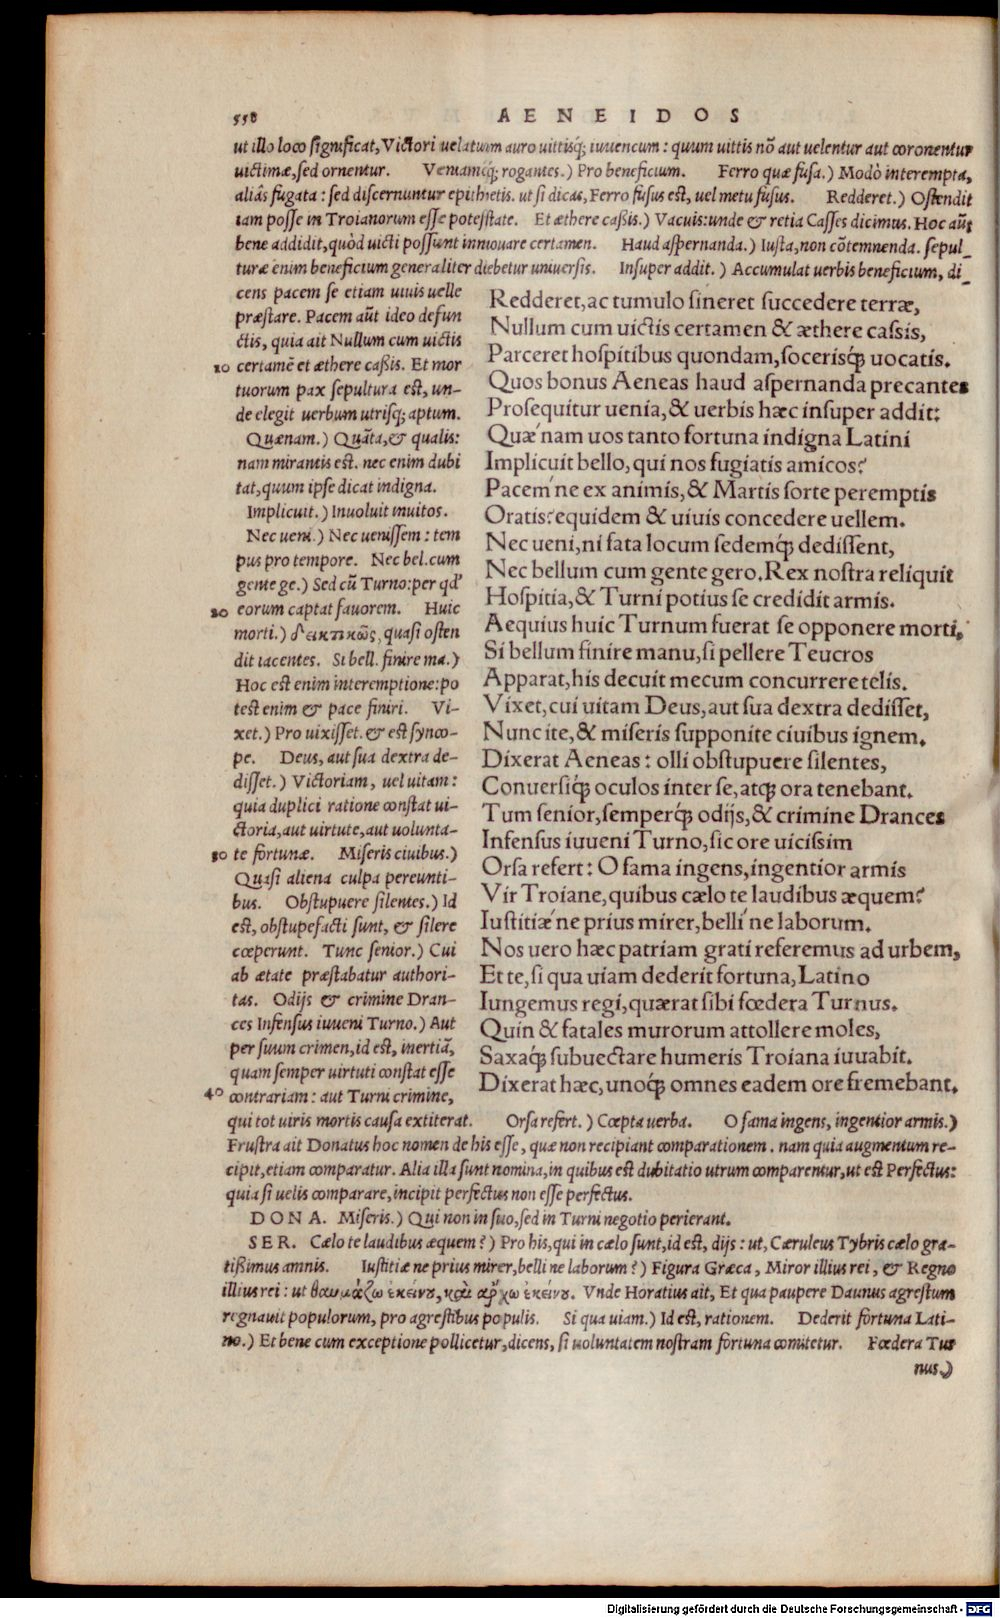 558 AENEIDOS
ut illo loco significat, Victori uelatum auro uittisq́; iuuencum: quum uittis nõ aut uelentur aut coronentur
uictimæ, sed ornentur. Veniamq́; rogantes.) Pro beneficium. Ferro quæ fusa.) Modò interempta,
aliâs fugata: sed discernuntur epithetis. ut si dicas, Ferro fusus est, uel metu fusus. Redderet.) Ostendit
iam posse in Troianorum esse potestate. Et æthere cassis.) Vacuis: unde & retia Casses dicimus. Hoc aũt
bene addidit, quòd uicti possunt innouare certamen. Haud aspernanda.) Iusta, non cõtemnenda. sepul_
turæ enim beneficium generaliter diebetur uniuersis. Insuper addit.) Accumulat uerbis beneficium, di_
cens pacem se etiam uiuis uelle
præstare. Pacem aũt ideo defun
ctis, quia ait Nullum cum uictis
10 certamẽ et æthere cassis. Et mor
tuorum pax sepultura est, un-
de elegit uerbum utrisq; aptum.
Quænam.) Quãta, & qualis:
nam mirantis est. nec enim dubi
tat, quum ipse dicat indigna.
Implicuit.) Inuoluit inuitos.
Nec ueni.) Nec uenissem: tem
pus pro tempore. Nec bel. cum
gente ge.) Sed cũ Turno: per qd'
20 eorum captat fauorem. Huic
morti.) δεικτικῶς, quasi osten
dit iacentes. Si bell. finire ma.)
Hoc est enim interemptione: po
test enim & pace finiri. Vi-
xet.) Pro uixisset. & est synco-
pe. Deus, aut sua dextra de-
disset.) Victoriam, uel uitam:
quia duplici ratione constat ui-
ctoria, aut uirtute, aut uolunta-
30 te fortunæ. Miseris ciuibus.)
Quasi aliena culpa pereunti-
bus. Obstupuere silentes.) Id
est, obstupefacti sunt, & silere
cœperunt. Tunc senior.) Cui
ab ætate præstabatur authori-
tas. Odijs & crimine Dran-
ces Infensus iuueni Turno.) Aut
per suum crimen, id est, inertiã,
quam semper uirtuti constat esse
40 contrariam: aut Turni crimine,
Redderet, ac tumulo sineret succedere terræ,
Nullum cum uictis certamen & æthere cassis,
Parceret hospitibus quondam, socerisq́; uocatis.
Quos bonus Aeneas haud aspernanda precantes
Prosequitur uenia, & uerbis hæc insuper addit:
Quæ´nam uos tanto fortuna indigna Latini
Implicuit bello, qui nos fugiatis amicos?
Pacem´ne ex animis, & Martis sorte peremptis
Oratis? equidem & uiuis concedere uellem.
Nec ueni, ni fata locum sedemq́; dedissent,
Nec bellum cum gente gero. Rex nostra reliquit
Hospitia, & Turni potius se credidit armis.
Aequius huic Turnum fuerat se opponere morti.
Si bellum finire manu, si pellere Teucros
Apparat, his decuit mecum concurrere telis.
Vixet, cui uitam Deus, aut sua dextra dedisset,
Nunc ite, & miseris supponite ciuibus ignem.
Dixerat Aeneas: olli obstupuere silentes,
Conuersiq́; oculos inter se, atq́; ora tenebant.
Tum senior, semperq́; odijs, & crimine Drances
Infensus iuueni Turno, sic ore uicissim
Orsa refert: O fama ingens, ingentior armis
Vir Troiane, quibus cælo te laudibus æquem?
Iustitiæ´ne prius mirer, belli´ne laborum.
Nos uero hæc patriam grati referemus ad urbem,
Et te, si qua uiam dederit fortuna, Latino
Iungemus regi, quærat sibi fœdera Turnus.
Quin & fatales murorum attollere moles,
Saxaq́; subuectare humeris Troiana iuuabit.
Dixerat hæc, unoq́; omnes eadem ore fremebant.
qui tot uiris mortis causa extiterat. Orsa refert.) Cœpta uerba. O fama ingens, ingentior armis.)
Frustra ait Donatus hoc nomen de his esse, quæ non recipiant comparationem. nam quia augmentum re-
cipit, etiam comparatur. Alia illa sunt nomina, in quibus est dubitatio utrum comparentur, ut est Perfectus:
quia si uelis comparare, incipit perfectus non esse perfectus.
DONA. Miseris.) Qui non in suo, sed in Turni negotio perierant.
SER. Cælo te laudibus æquem?) Pro his, qui in cælo sunt, id est, dijs: ut, Cæruleus Tybris cælo gra-
tissimus amnis. Iustitiæ ne prius mirer, belli ne laborum?) Figura Græca, Miror illius rei, & Regno
illius rei: ut θαυμάζω ἐκείνου, καὶ ἄρχω ἐκείνου. Vnde Horatius ait, Et qua paupere Daunus agrestum
regnauit populorum, pro agrestibus populis. Si qua uiam.) Id est, rationem. Dederit fortuna Lati-
no.) Et bene cum exceptione pollicetur, dicens, si uoluntatem nostram fortuna comitetur. Fœdera Tur
nus.)
Digitalisierung gefördert durch die Deutsche Forschungsgemeinschaft - DFG